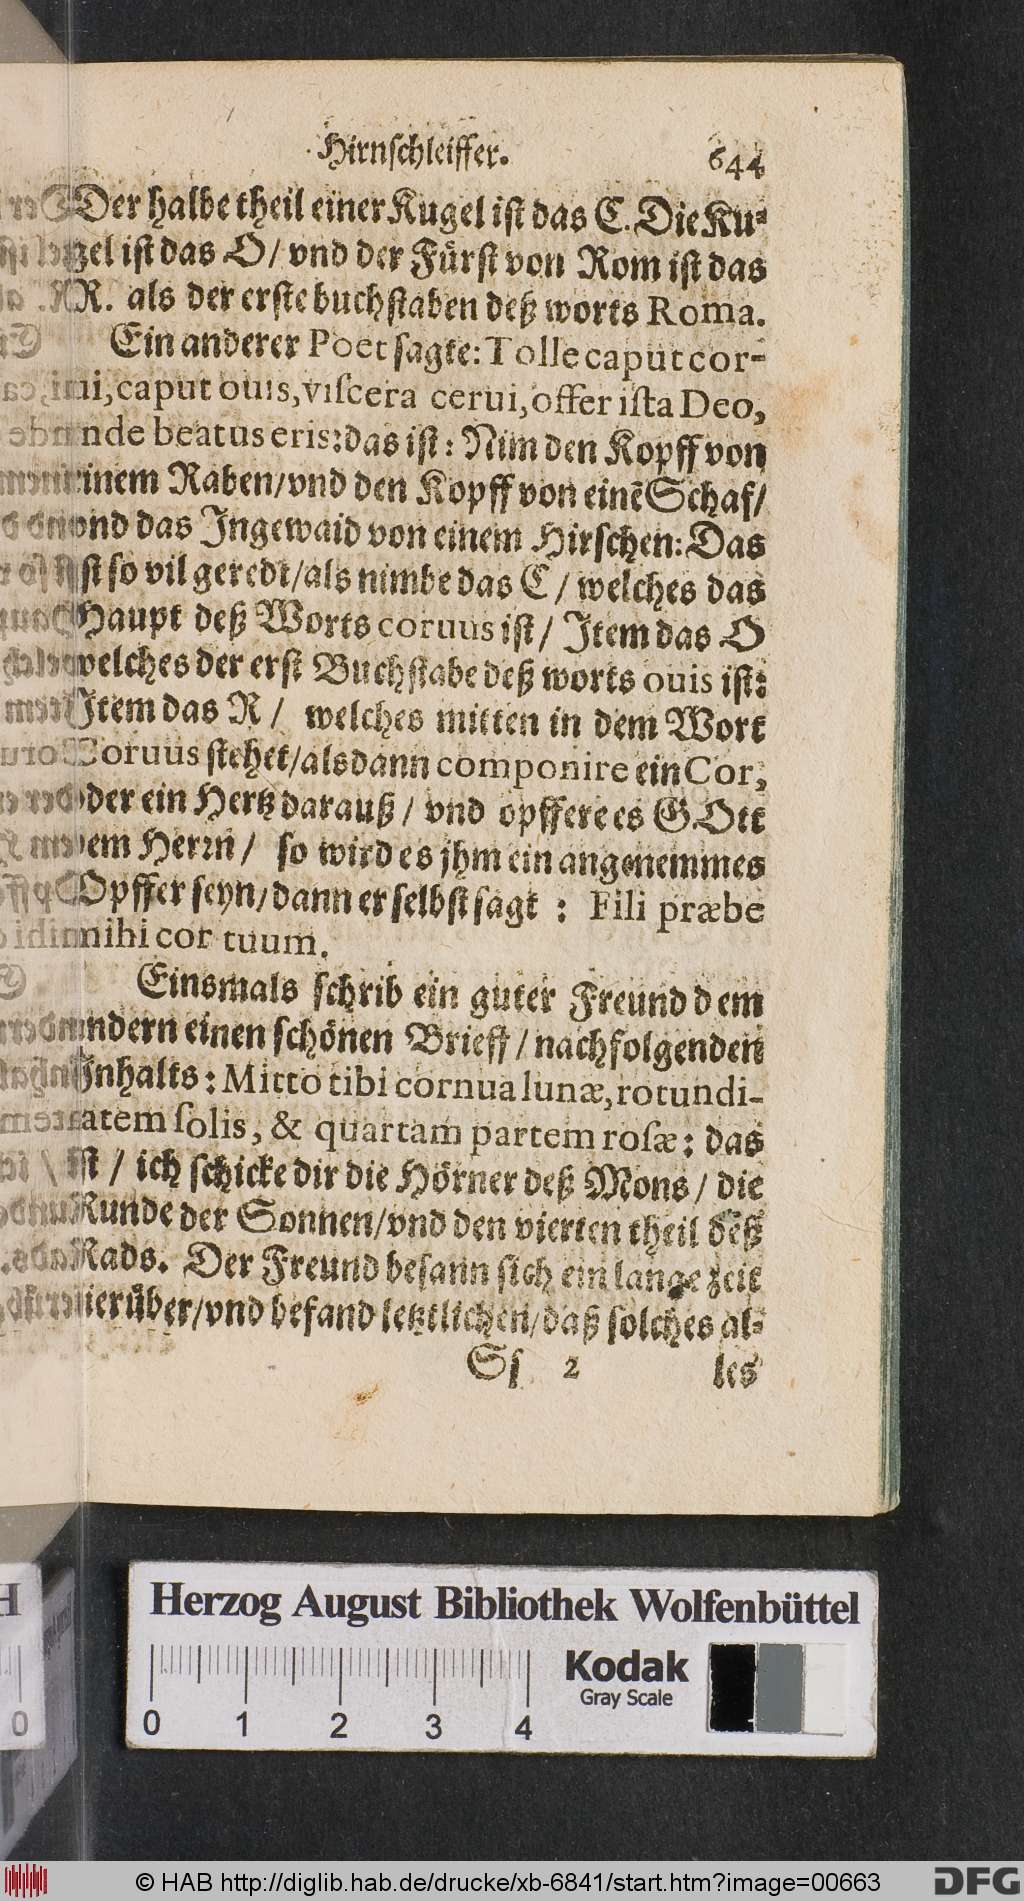 Hirnschleiffer. 644
Der halbe theil einer Kugel ist das C. Die Ku⸗
gel ist das O/ vnd der Fürst von Rom ist das
R. als der erste buchstaben deß worts Roma.
Ein anderer Poet sagte: Tolle caput cor-
ui, caput ouis, viſcera cerui, offer iſta Deo,
inde beatus eris: das ist: Nim den Kopff von
einem Raben/ vnd den Kopff von einẽ Schaf/
vnd das Ingewaid von einem Hirschen: Das
ist so vil geredt/ als nimbe das C/ welches das
Haupt deß Worts coruus ist/ Item das O
welches der erst Buchstabe deß worts ouis ist:
Item das R/ welches mitten in dem Wort
Coruus stehet/ alsdann componire ein Cor,
oder ein Hertz darauß/ vnd opffere es GOtt
dem Herrn/ so wird es jhm ein angenemmes
Opffer seyn/ dann er selbst sagt: Fili præbe
mihi cor tuum.
Einsmals schrib ein guter Freund dem
andern einen schönen Brieff/ nachfolgenden
Inhalts: Mitto tibi cornua lunæ, rotundi-
tatem ſolis, & quartam partem rosæ: das
ist/ ich schicke dir die Hörner deß Mons/ die
Runde der Sonnen/ vnd den vierten theil deß
Rads. Der Freund besann sich ein lange zeit
hierüber/ vnd befand letztlichen/ daß solches al⸗
Ss 2 les
Herzog August Bibliothek Wolfenbüttel
Kodak
Gray Scale
0 1 2 3 4
0
© HAB http://diglib.hab.de/drucke/xb-6841/start.htm?image=00663
DFG